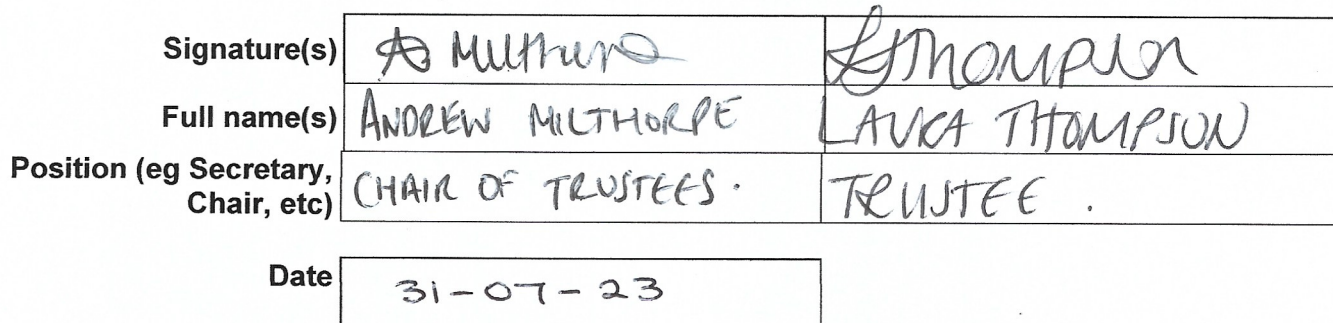 Signature(s) A Milthorpe LThompson
Full name(s) ANDREW MILTHORPE LAURA THOMPSON
Position (eg Secretary,
Chair, etc) CHAIR OF TRUSTEES. TRUSTEE.
Date 31-07-23